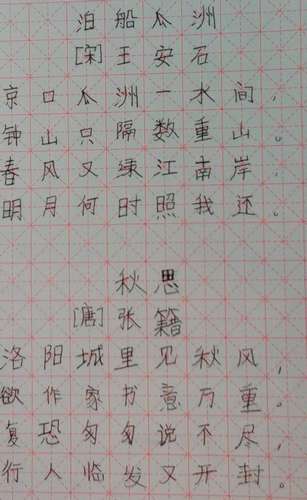 泊船瓜洲
[宋]王安石
京口瓜洲一水间，
钟山只隔数重山。
春风又绿江南岸，
明月何时照我还。
秋思
[唐]张籍
洛阳城里见秋风，
欲作家书意万重。
复恐匆匆说不尽，
行人临发又开封。